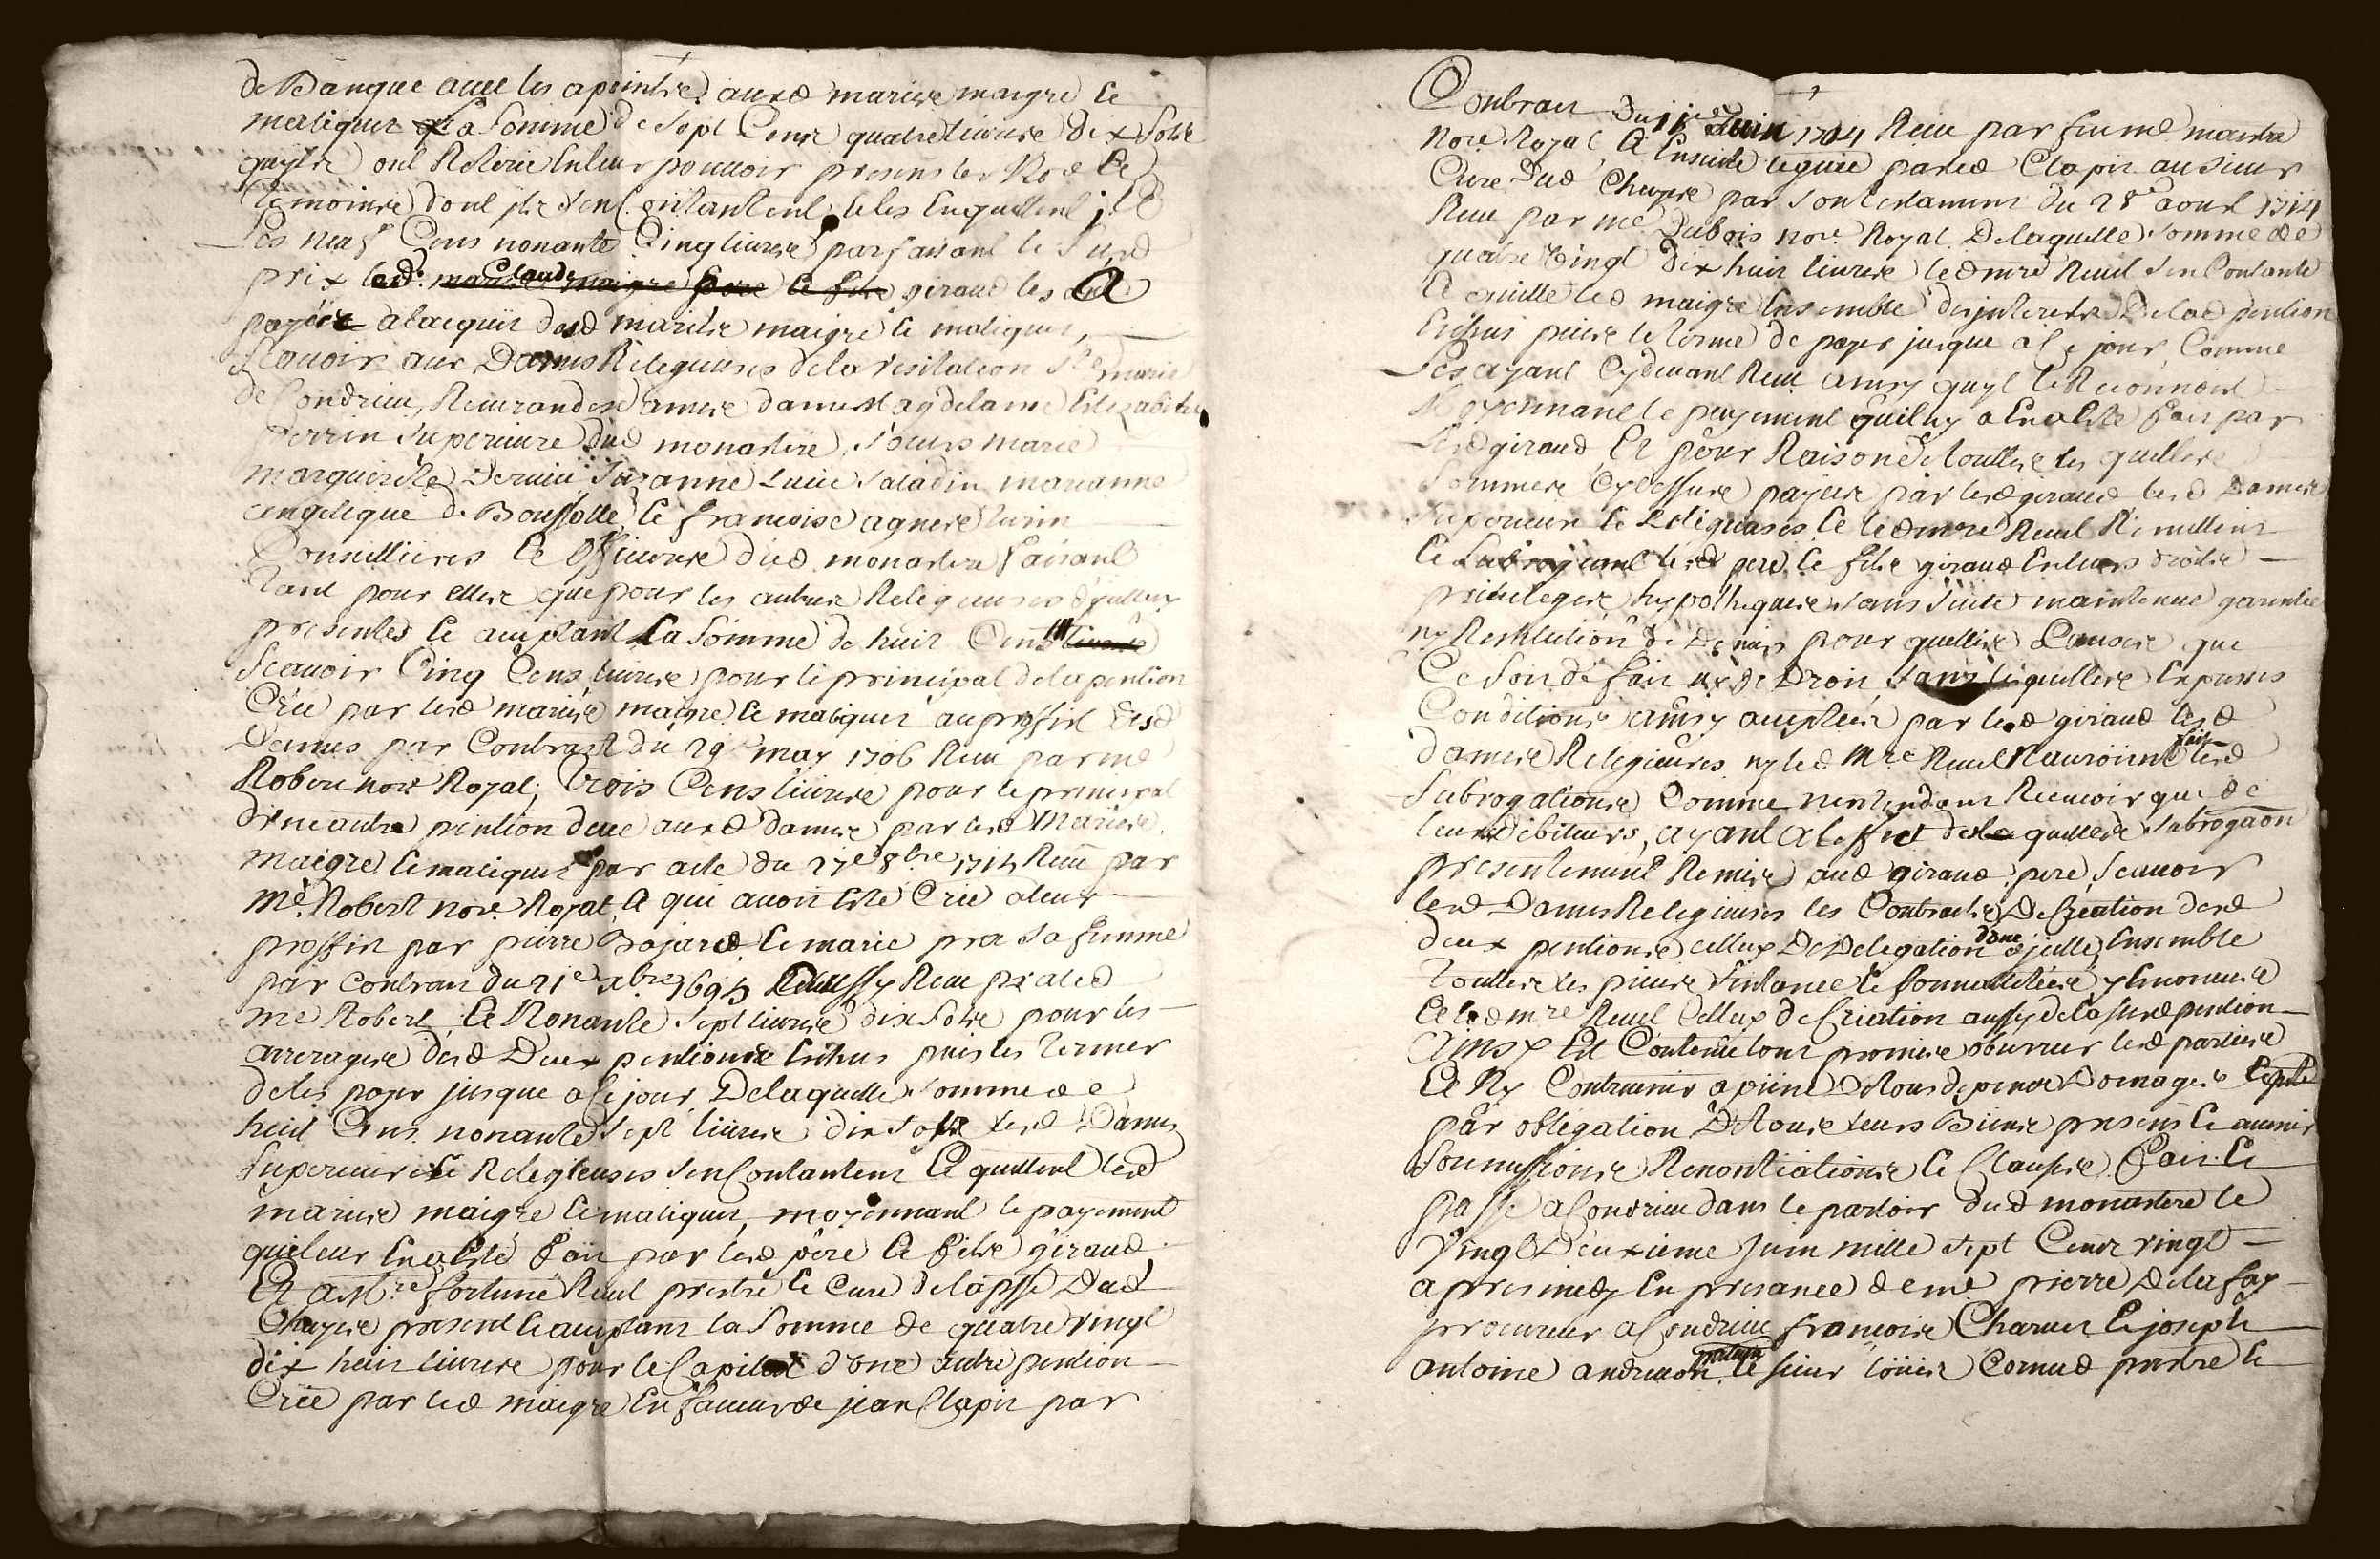 de Banque avec les apointés auxd mariés maigre et
matiquet la somme de sept Cens quatre livres dix sols
quyls ont Retirée en leur pouvoir presens led No.re et
temoins dont ils sen Contantent et les en quittent; Et
Les neuf Cens nonante Cinq livres parfaisant le susd
prix led. Claude giraud les a
payés a lacquit desd mariés maigre et matiquet,
Scavoir aux Dames Religieuses de la visitation Ste marie
de Condrieu, Reverandes meres dame magdelaine Elizabeth
perrin superieure dud monastere, soeurs marie
marguerite Suzanne Lucie saladin marianne
angelique de Boussolle et francoise agnes
Conseilliers et officieres dud. monastere faisant
tant pour elles que pour les autres Religieuses d'jcelluy
presentes et aceptant La somme de huit Cens
Scavoir Cinq Cens livres pour le principal de la pention
Crée par lesd mariés maigre et matiquet au proffit desd
Dames par Contract du 29e may 1706 Receu par me
Robert nore Royal; Trois Cens livres pour le principal
d'une autre pention deue auxd dames par lesd mariés
maigre et matiquet par acte du 27e 8bre 1714 Receu par
me. Robert nore. Royal, et qui avoit esté Crée a leur
proffit par pierre Bojard et marie sa femme
par contrat du 21e xbre 1695 aussy Receu par led
me Robert, et Nonante sept livres dix sols pour les
arrerages desd Deux pentions Echus puis les Termes
de les payer jusque a ce jour, De laquelle somme de
huit Cens nonante sept livres dix sols lesd Dames
Superieure et Religieuses sen Contantent et quittent lesd
mariés maigre et matiquet, moyennant le payement
qui leur en a esté fait par lesd père et fils giraud
Et a Mre fortuné Reuel prestre et Curé de la psse Dud
Chuyes present et aceptant la somme de quatre vingt
dix huit livres pour le Capital d'une autre pention
Crée par led maigre en faveur de jean Clapit par
Contrat Du 11e Juin 1704 Receu par feu me
nore Royal et Ensuite leguée par led Clapit au sieur
Curé dud Chuyes par son testament du 28e aout 1714
Receu par me Dubois nore Royal De laquelle somme de
quatre vingt dix huit livres led mre Reuel sen Contante
et quitte led maigre Ensemble des jnterets De lad pention
Echus puis le terme de payer jusque a ce jour Comme
Les ayant Cydevant Receu ainsy quyl le Reconnoist
Moyennant le payement qui luy a En a Esté fait par
Lesd giraud, Et pour Raison de touttes les quelles
sommes Cydessus payées par lesd giraud lesd Dames
superieure et Religieuses et led mre Reuel Remettent
et subrogeant lesd pere et fils giraud En leurs droits
privileges hypotheques sans suitte maintenue garantie
ny Restitution de Deniers pour quelles Causes que
Ce soit de fait ny de Droit, sans lesquelles Expresses
Conditions ainsy aceptées par lesd giraud lesd
dames Religieuses ny led Mre Reuel Nauroient fait lesd
Subrogations Comme nentendant Recevoir que de
leurs debiteurs, ayant a leffet desquelles subrogaon
presentement Remis aud giraud pere, scavoir
lesd Dames Religieuses les Contracts De Creation desd
deux pentions, celluy De Delegation d'une d'jcelles, Ensemble
Touttes les pieces
et led mre Reuel Celluy de Creation aussy de la susd pention
Ainsy Est Contenu tout promis observer lesd parties
et Ny Contrevenir a peine De tous depens Domages
par obligation De tous leurs Biens presens et avenir
Soumissions Renontiations et Clauses. fait et
passé a Condrieu dans le parloir dud monastere le
vingt Deuxieme Juin mille sept Cens vingt
apres midy En presance de me pierre Delafay
procureur a Condrieu francois Charvet et joseph
antoine andrevon, le sieur loüis Cornud prestre et